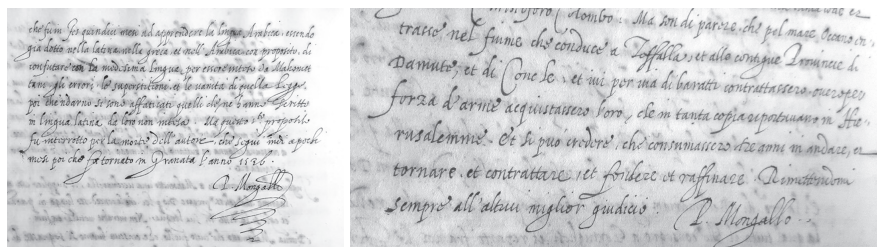 che fuin Fez quindici mesi ad apprendere la lingua Arabica, essendo
gia dotto nella latina, nella greca, et nell' Arabica con proposito, di
confutare con la medesima lingua, per essere inteso da Mahomet
tani gli errori, le superstitioni, et le vanità di quella legge,
poi che indarno si sono affaticati quelli che ne hanno scritto
in lingua latina, da loro non intesa. Ma questo propósito
fu interrotto per la morte dell' autore, che seguì mesi
poi che fu tornato in Granata l'anno 1536.
P. Mongallo
Colombo. Ma son di parere, che pel mare Oceano
trasse nel fiume che conduce a Zoffalla, et alle contigue Provincie di
Damute, et di Cone le, et ivi por via di baratti contrattassero, overo per
forza d'arme acquistassero l'oro, che in tanta copia reportavano in Hie-
rusalemme. Et si puo credere, che consumassero tre anni in andare, et
tornare, et contrattare, et fondere et raffinare. Rimettendomi
sempre all' altrui miglior giudicio.
P. Mongallo.